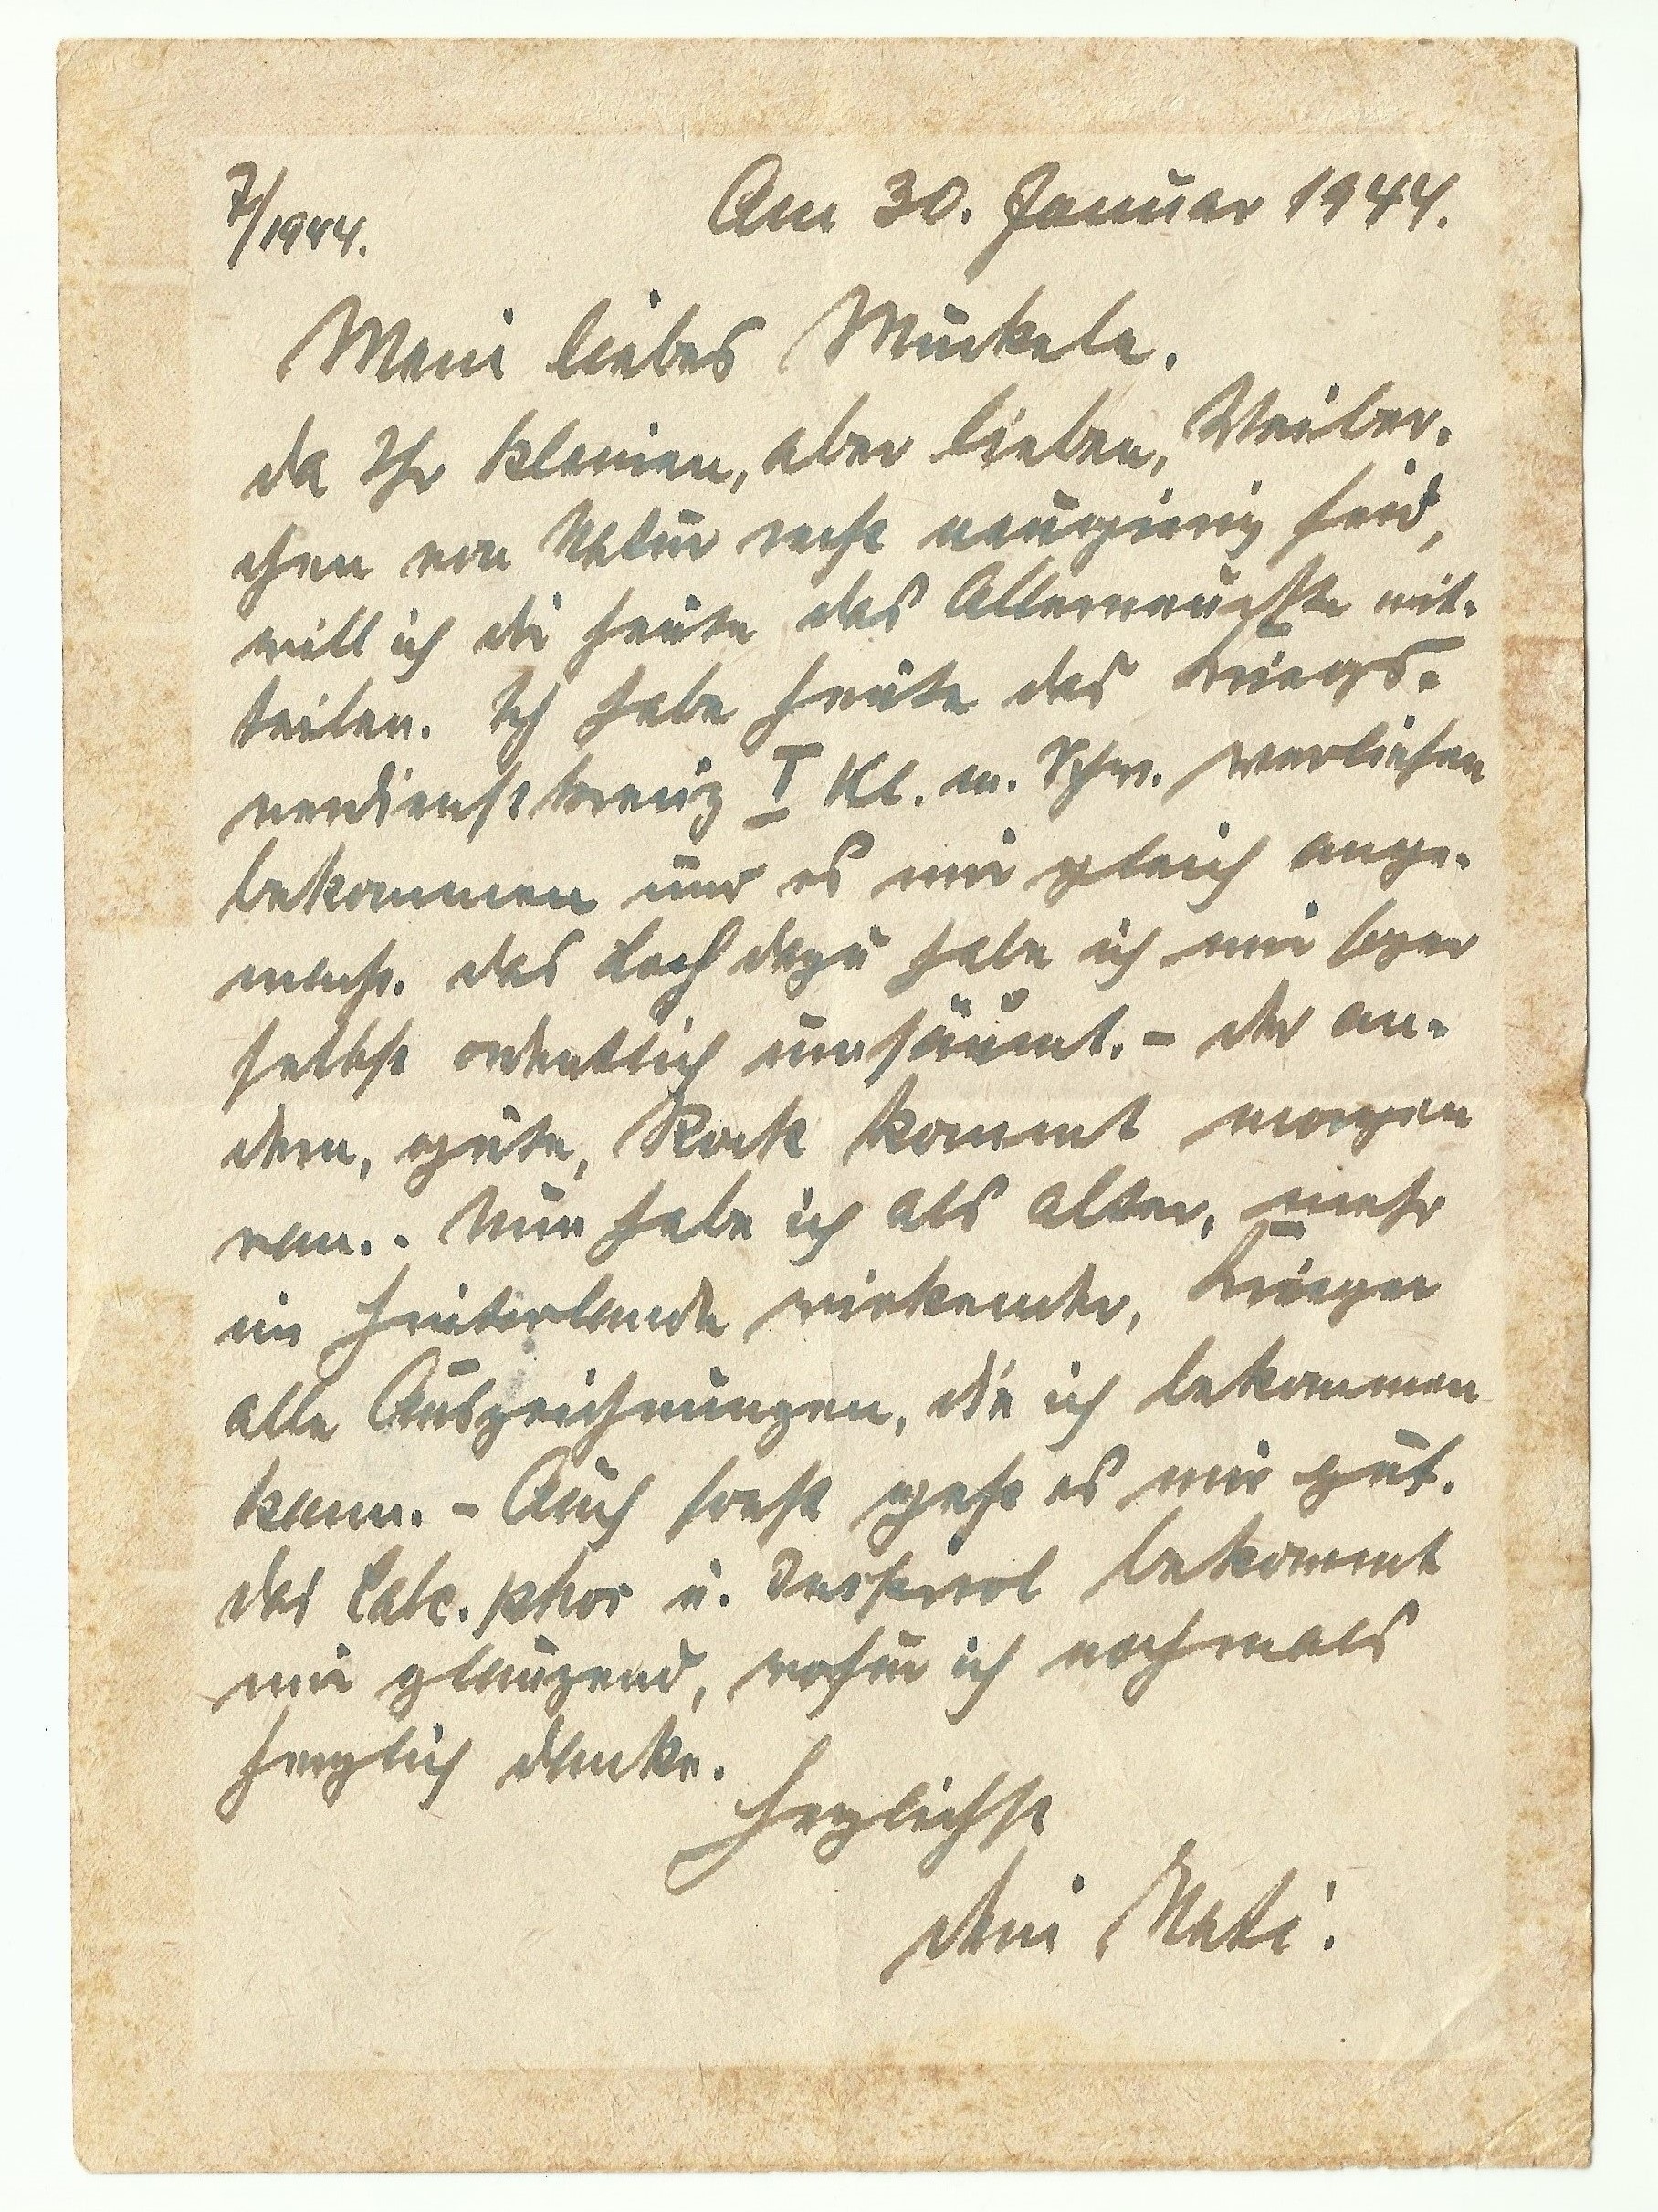 7/1944.
Am 30. Januar 1944.
Mein liebes Muckele.
da Ihr kleinen, aber lieben, Weiber-
chen von Natur recht neugierig seid,
will ich dir heute das Allerneueste mit-
teilen. Ich habe heute das Kriegs-
verdienstkreuz I Kl. m. Schw. verliehen
bekommen und es mir gleich ange-
macht. das Loch dazu habe ich mir sogar
selbst ordentlich umsäumt. - der an-
dere, gute, Rock kommt morgen
ran. - Nun habe ich als alter, mehr
im Hinterlande wirkender, Krieger
alle Auszeichnungen, die ich bekommen
kann. - Auch sonst geht es mir gut.
das Calc. phos u. bekommt
mir glänzend, wofür ich nochmals
herzlich danke.
Herzlichst
dein